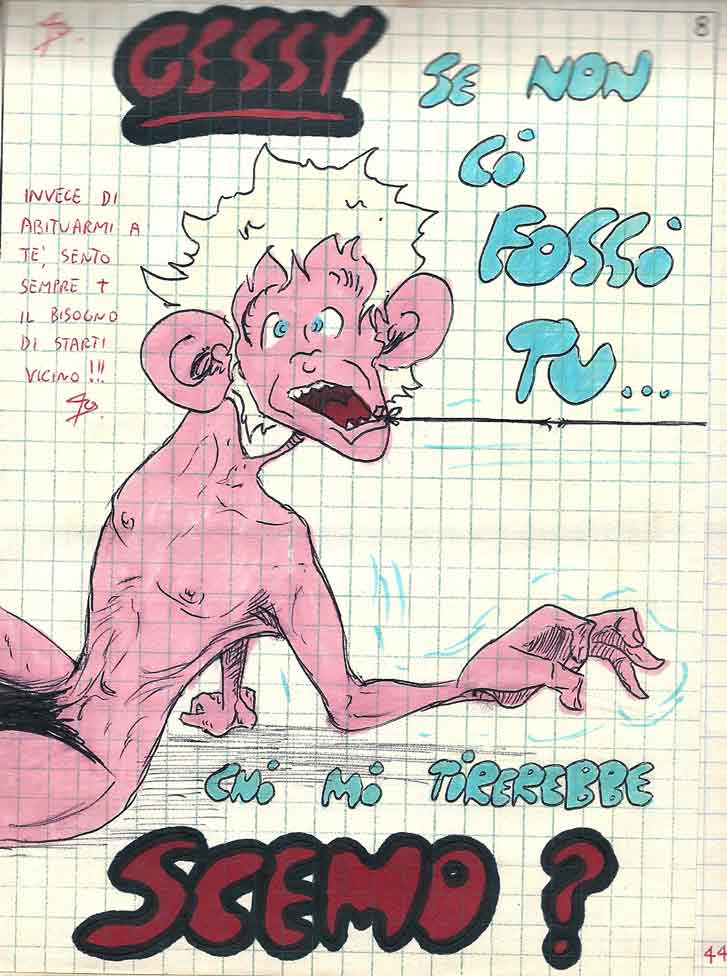 8
GESSY
SE NON
CI
FOSSI
TU...
INVECE DI
ABITUARMI A
TE', SENTO
SEMPRE +
IL BISOGNO
DI STARTI
VICINO!!!
CHI MI TIREREBBE
SCEMO?
44